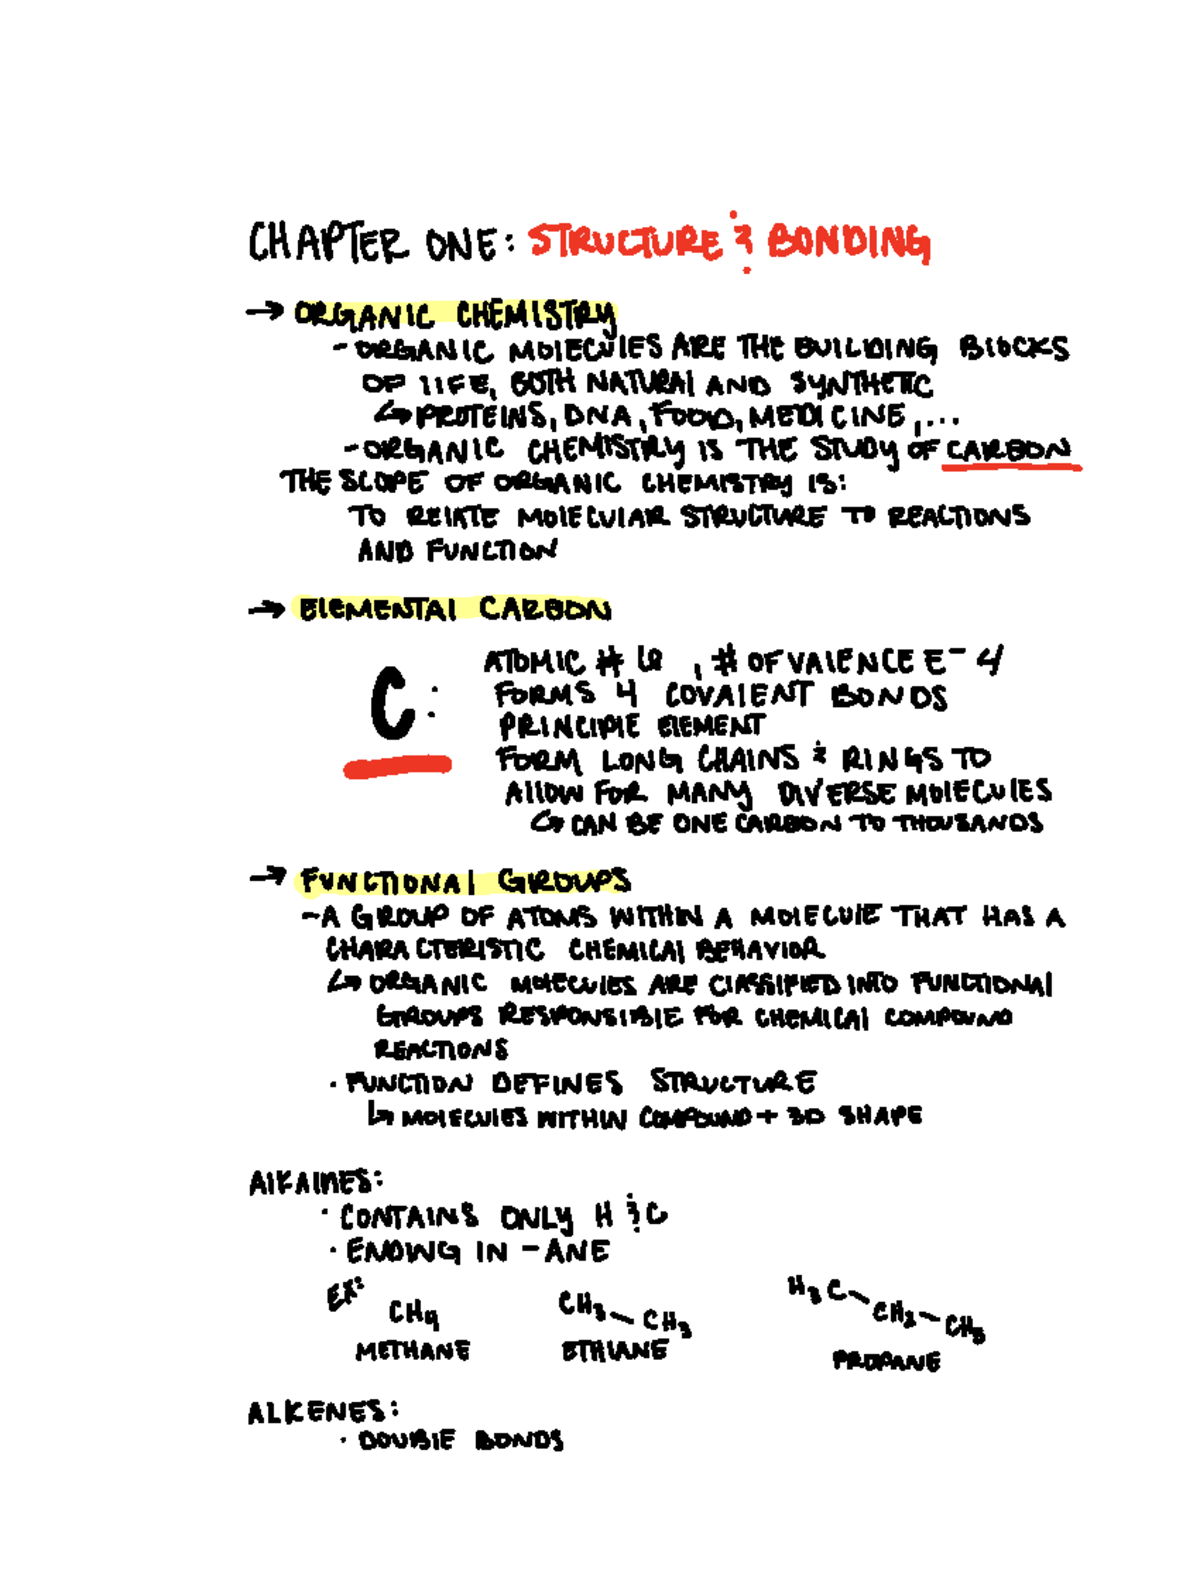 CHAPTER ONE: STRUCTURE & BONDING
→ ORGANIC CHEMISTRY
- ORGANIC MOLECULES ARE THE BUILDING BLOCKS
OF LIFE, BOTH NATURAL AND SYNTHETIC
↳ PROTEINS, DNA, FOOD, MEDICINE, ...
- ORGANIC CHEMISTRY IS THE STUDY OF CARBON
THE SCOPE OF ORGANIC CHEMISTRY IS:
TO RELATE MOLECULAR STRUCTURE TO REACTIONS
AND FUNCTION
→ ELEMENTAL CARBON
C: ATOMIC # 6, # OF VALENCE E⁻ 4
FORMS 4 COVALENT BONDS
PRINCIPLE ELEMENT
FORM LONG CHAINS & RINGS TO
ALLOW FOR MANY DIVERSE MOLECULES
↳ CAN BE ONE CARBON TO THOUSANDS
→ FUNCTIONAL GROUPS
- A GROUP OF ATOMS WITHIN A MOLECULE THAT HAS A
CHARACTERISTIC CHEMICAL BEHAVIOR
↳ ORGANIC MOLECULES ARE CLASSIFIED INTO FUNCTIONAL
GROUPS RESPONSIBLE FOR CHEMICAL COMPOUND
REACTIONS
· FUNCTION DEFINES STRUCTURE
↳ MOLECULES WITHIN COMPOUND + 3D SHAPE
ALKANES:
· CONTAINS ONLY H & C
· ENDING IN -ANE
EX: CH₄ CH₃-CH₃ H₃C-CH₂-CH₃
METHANE ETHANE PROPANE
ALKENES:
· DOUBLE BONDS